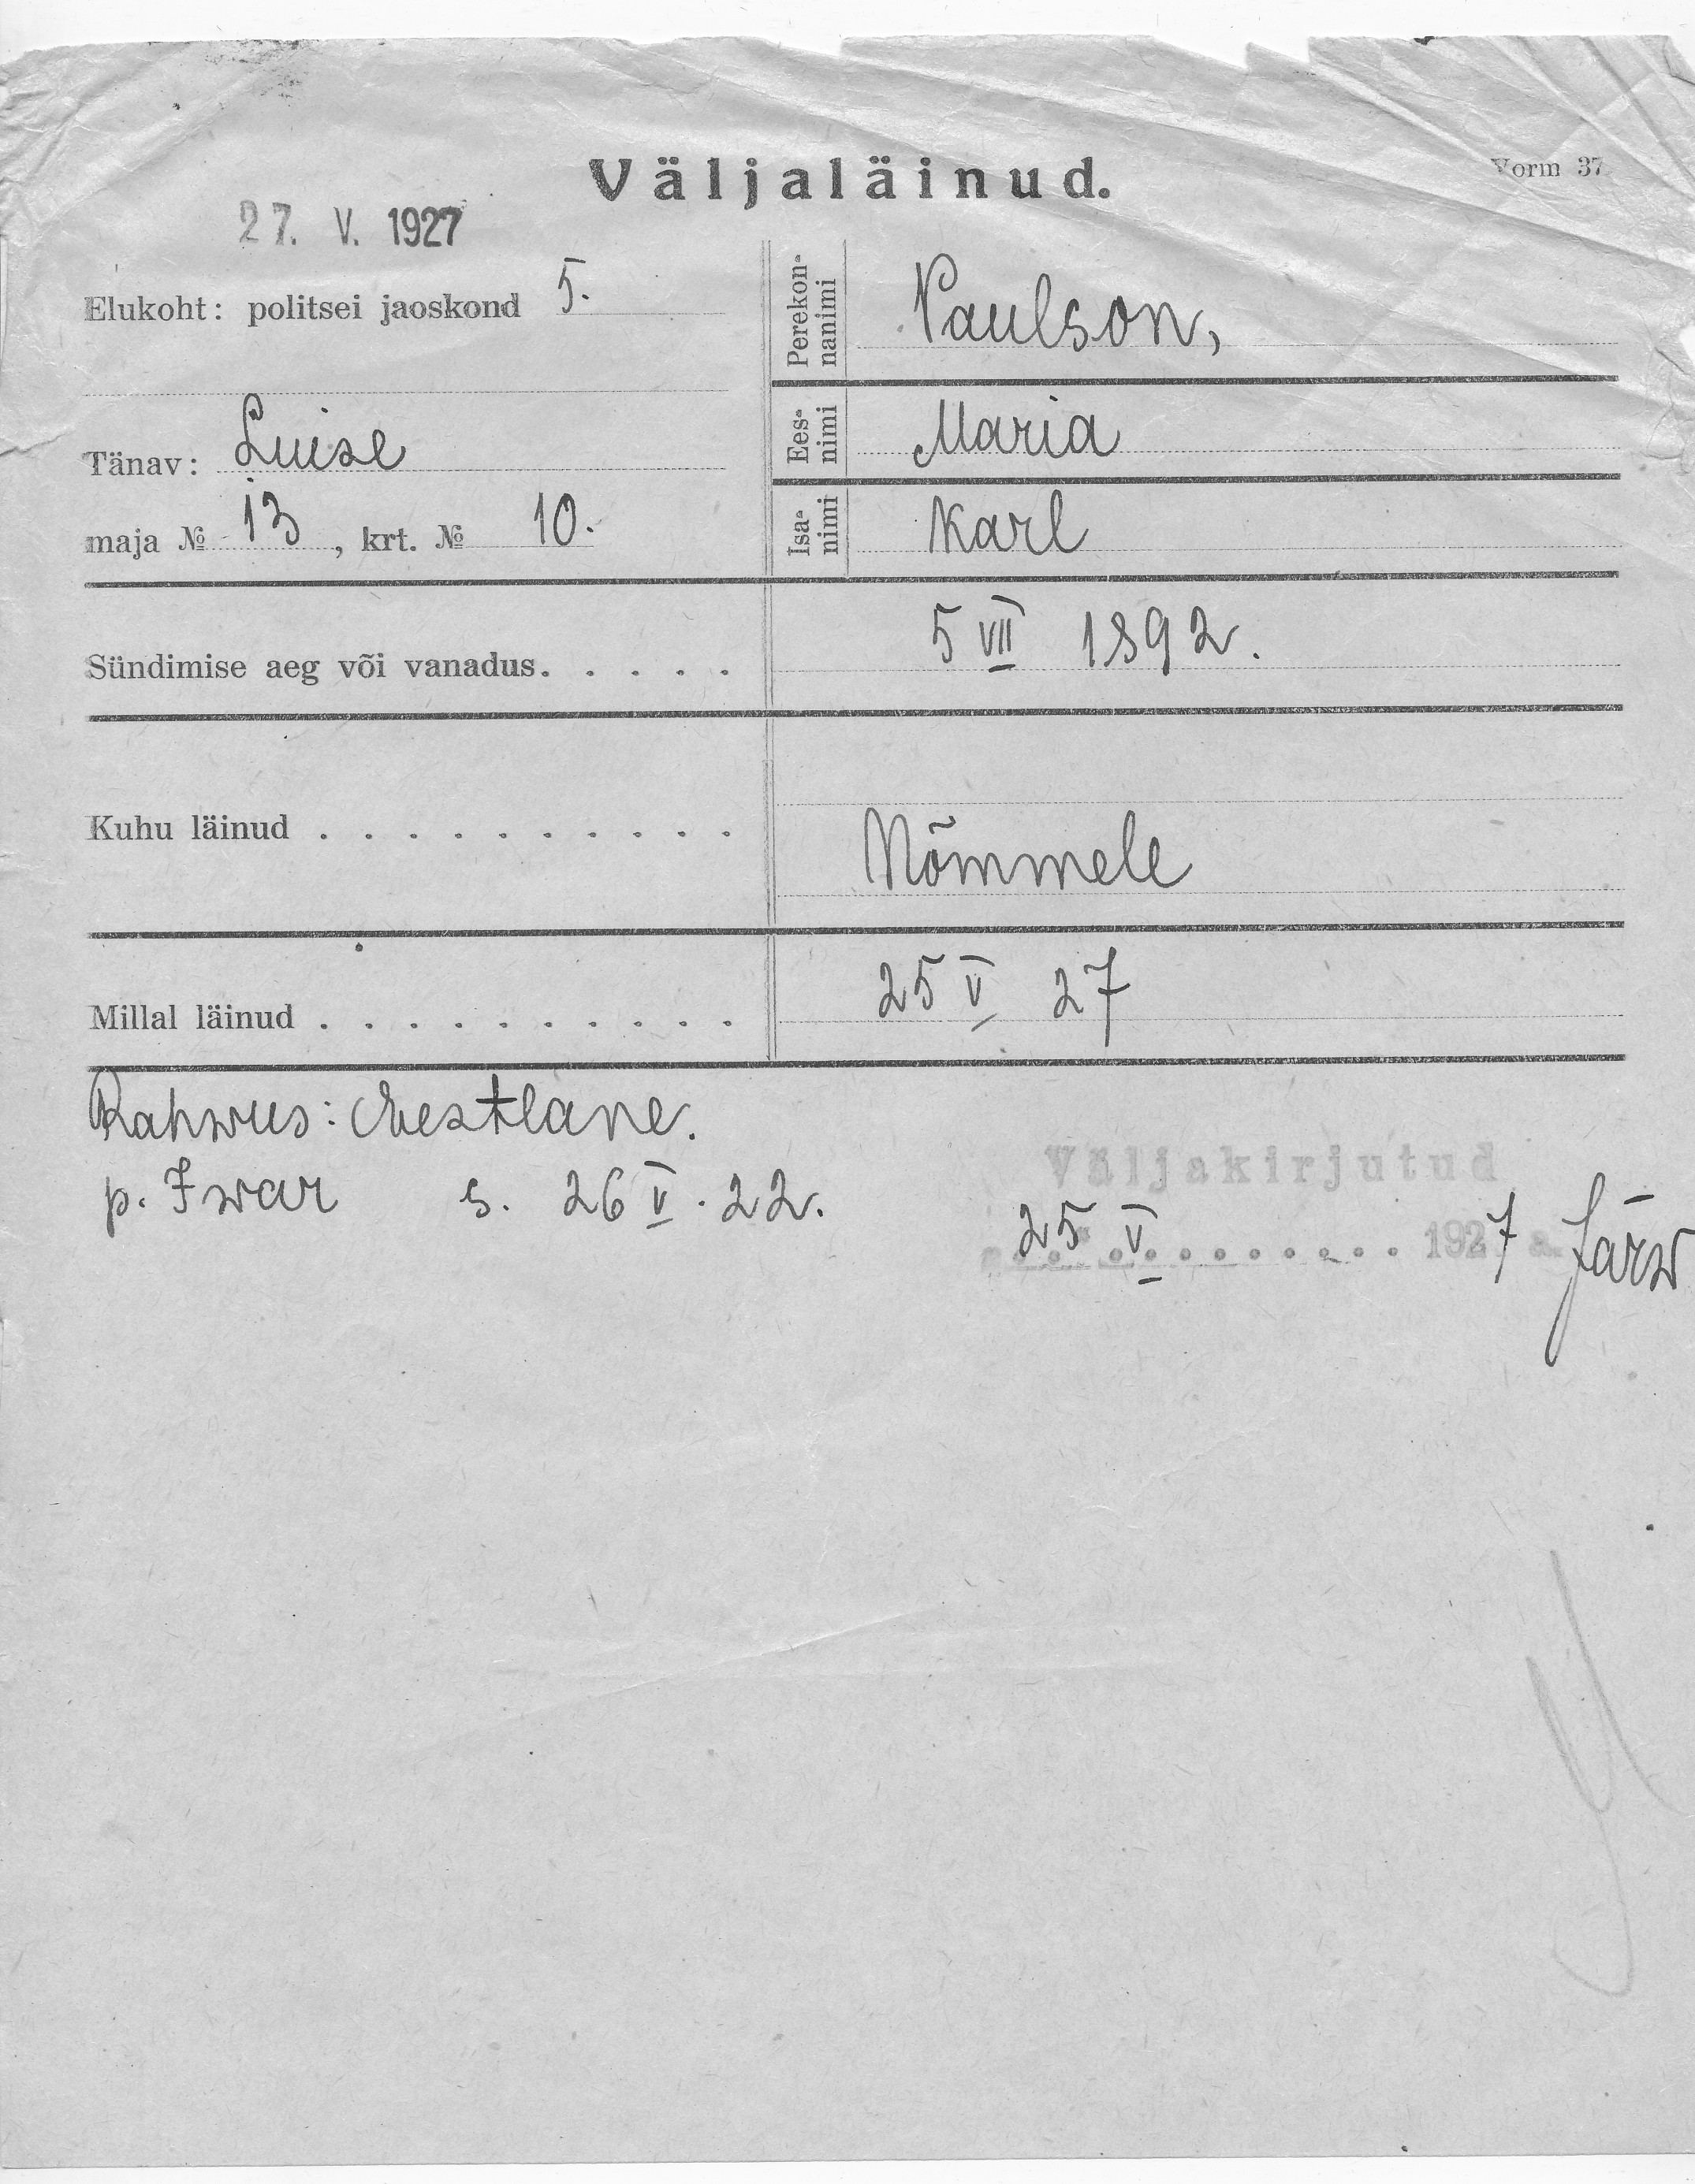 Väljaläinud.
Vorm 37.
27. V. 1927
Elukoht: politsei jaoskond 5.
Perekon-
nanimi
Paulson,
Tänav: Luise
Ees-
nimi
Maria
maja № 13, krt. № 10.
Isa-
nimi
Karl
Sündimise aeg või vanadus. . . . . 5 VII 1892.
Kuhu läinud . . . . . . . . . . Nõmmele
Millal läinud . . . . . . . . . . 25 V 27
Rahwus: Eestlane.
p. Iwar s. 26 V. 22.
Väljakirjutud
25 V 1927 a. Järw